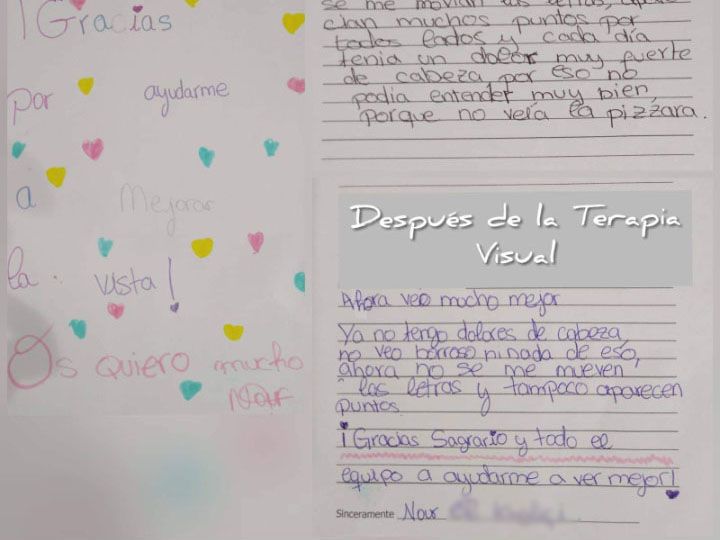 ¡Gracias
por ayudarme
a Mejorar
la vista!
Os quiero mucho
Nour
se me movían las letras,
cían muchos puntos por
todos lados y cada día
tenia un dolor muy fuerte
de cabeza por eso no
podia entender muy bien,
porque no veía la pizzara.
Después de la Terapia
Visual
Ahora veo mucho mejor
Ya no tengo dolores de cabeza,
no veo borroso ni nada de eso,
ahora no se me mueven
las letras y tampoco aparecen
puntos.
¡Gracias Sagrario y todo el
equipo a ayudarme a ver mejor!
Sinceramente Nour